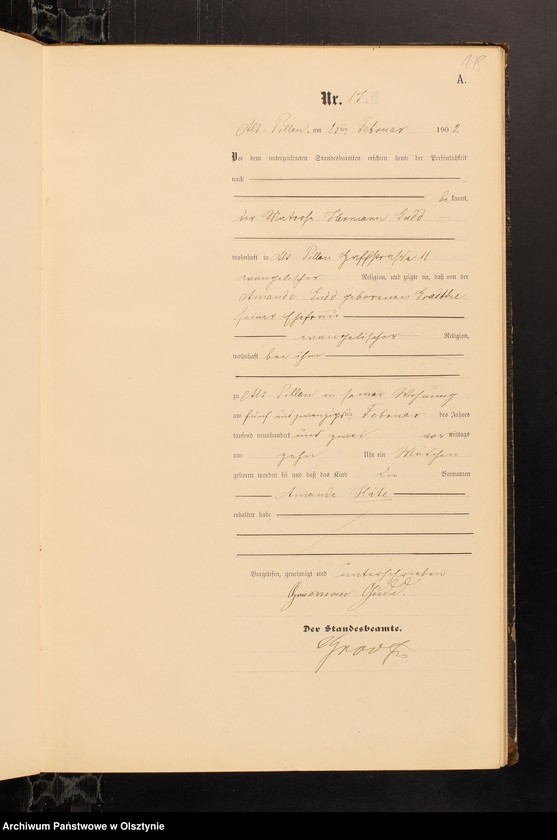 118
A.
Nr. 17.
Alt-Pillau, am 25ten Februar 1902
Vor dem unterzeichneten Standesbeamten erschien heute der Persönlichkeit
nach
bekannt,
der Matrose Hermann Gudd
wohnhaft in Alt Pillau 11
evangelischer Religion, und zeigte an, daß von der
Amande Gudd geborenen
seiner Ehefrau
evangelischer Religion,
wohnhaft bei ihm
zu Alt-Pillau in seiner Wohnung
am fünf und zwanzigsten Februar des Jahres
tausend neunhundert und zwei vormittags
um zehn Uhr ein Mädchen
geboren worden sei und daß das Kind die Vornamen
Amande
erhalten habe
Vorgelesen, genehmigt und unterschrieben
Hermann Gudd.
Der Standesbeamte.
Archiwum Państwowe w Olsztynie